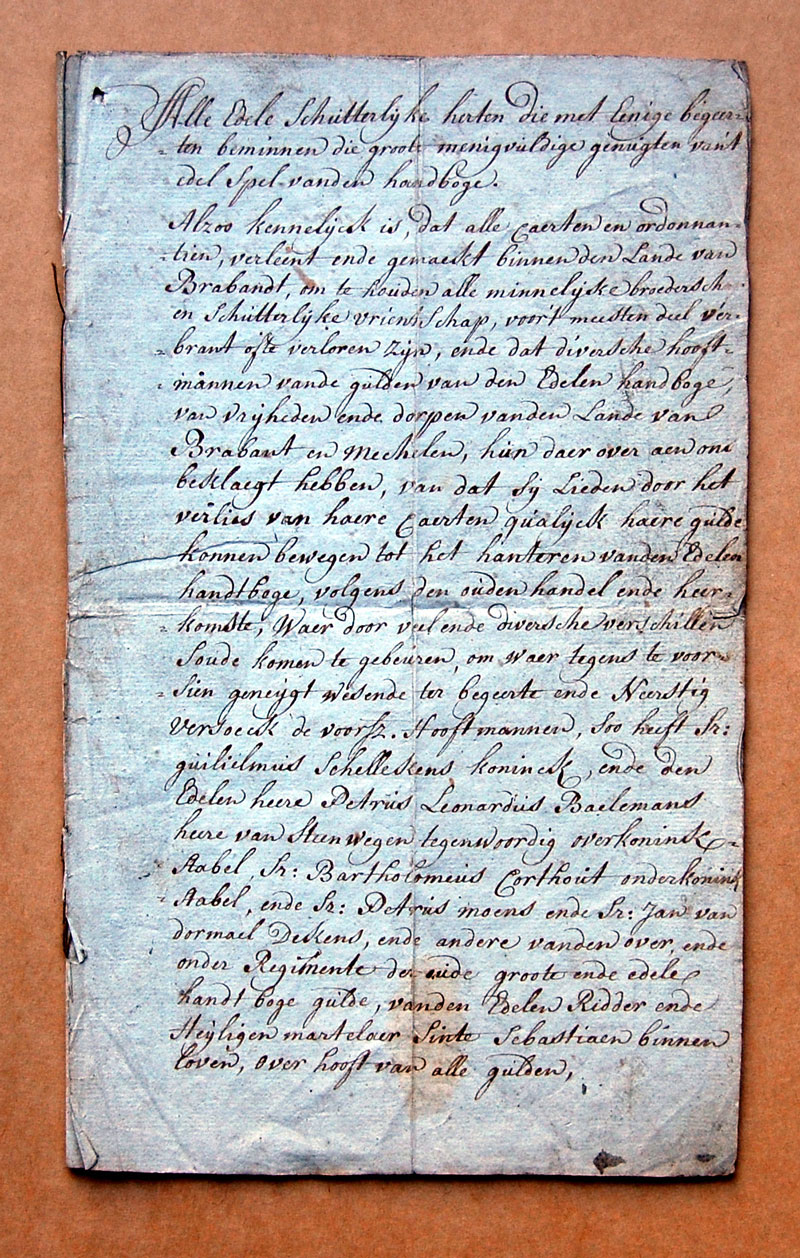 Alle Edele Schutterlijke herten die met Eenige begeer=
=ten beminnen die groote menigvuldige genugten van't
edel Spel vanden handboge.
Alzoo kennelijck is, dat alle Caerten en ordonnan=
=tien, verleent ende gemaeckt binnen den Lande van
Brabandt, om te houden alle minnelijcke broedersch
en Schutterlijke vriendSchap, voor't meesten deel ver=
=brant ofte verloren zijn, ende dat diversche hooft=
=mannen vande gulden van den Edelen handboge,
van vrijheden ende dorpen vanden Lande van
Brabant en Mechelen, hun daer over aen ons
beklaegt hebben, van dat sij Lieden door het
verlies van haere Caerten qualijck haere gulde
konnen bewegen tot het hanteren vanden Edelen
handtboge, volgens den ouden handel ende heer=
=komste, Waer door veel ende diversche verschillen
Soude komen te gebeuren, om waer tegens te voor=
=sien geneijgt wesende ter begeerte ende Neerstig
versoeck de voorsz. Hooftmannen, Soo heeft Sr:
guilielmus Schellekens koninck, ende den
Edelen heere Petrus Leonardus Baelemans
heere van Steenwegen tegenwoordig overkoninck=
Stabel, Sr: Bartholomeus Corthout onderkoninck
=Stabel, ende Sr: Petrus moens ende Sr: Jan van
dormael Dekens, ende andere vanden over, ende
onder Regimente der oude groote ende edele
handt boge gulde, vanden Edelen Ridder ende
Heijligen martelaer Sinte Sebastiaen binnen
Loven, over hooft van alle gulden,